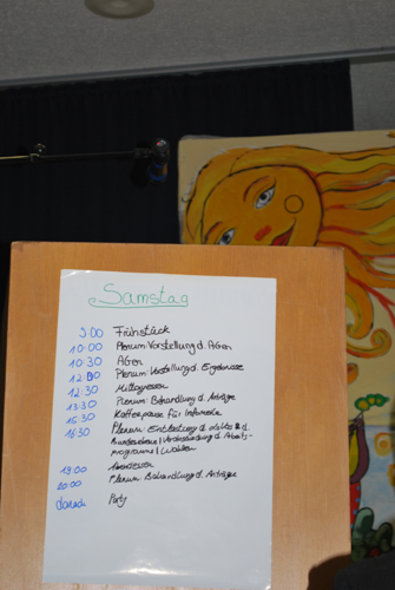 Samstag
9:00 Frühstück
10:00 Plenum: Vorstellung d. AGen
10:30 AGen
12:00 Plenum: Vorstellung d. Ergebnisse
12:30 Mittagessen
13:30 Plenum: Behandlung d. Anträge
15:30 Kaffeepause für
16:30 Plenum: Entlastung d. &. d.
Verabschiedung d. Arbeits-
programms | Wahlen
19:00 Abendessen
20:00 Plenum: Behandlung d. Anträge
danach Party